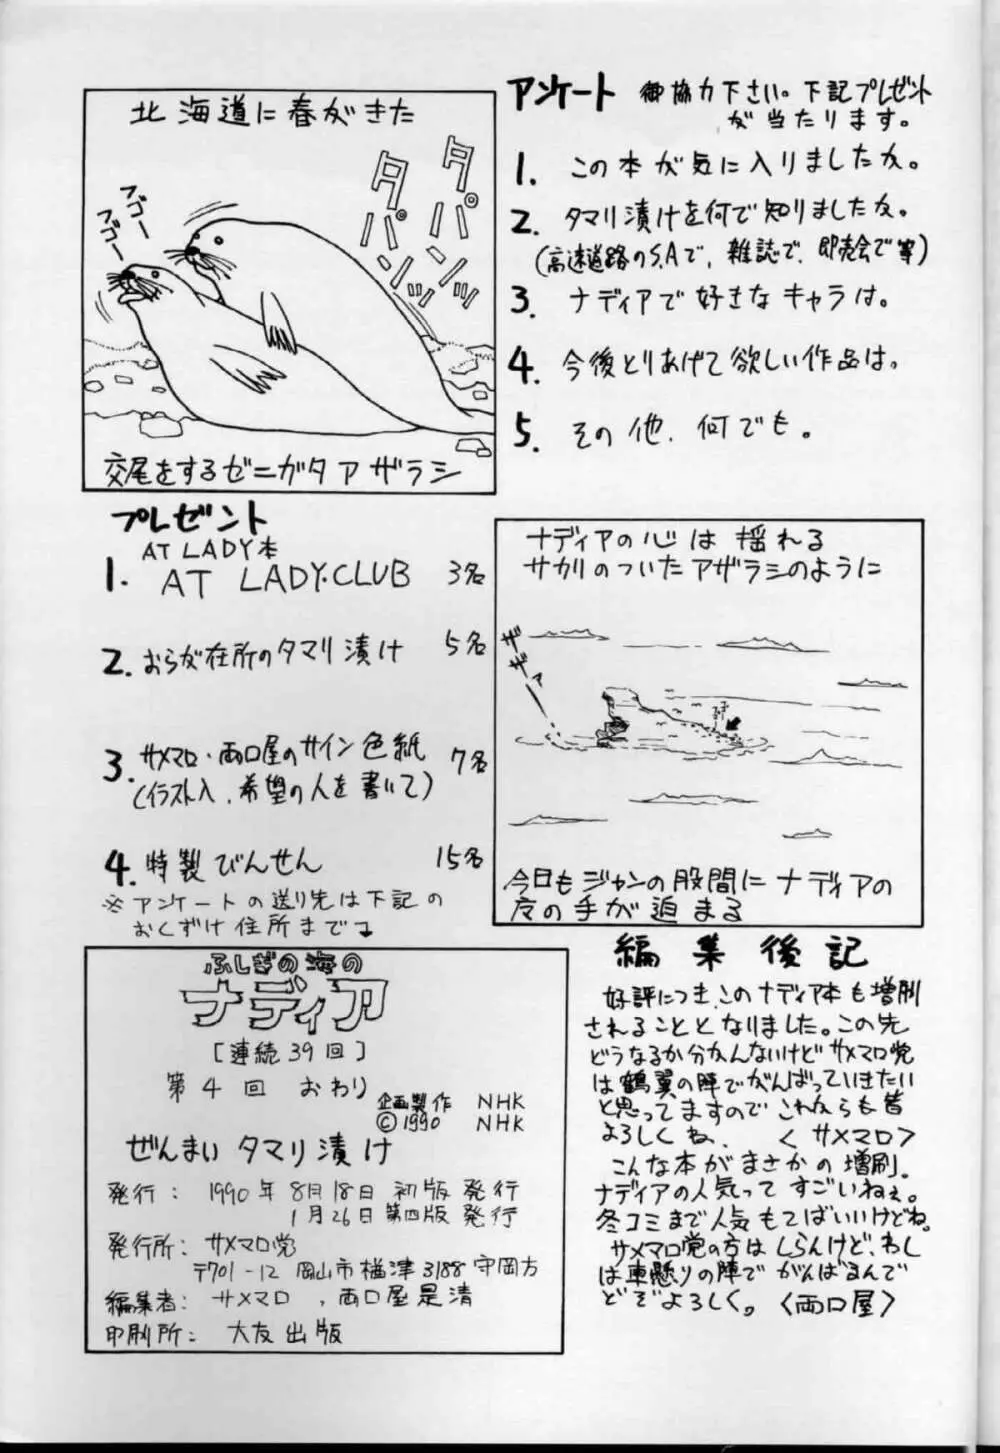 北海道に春がきた
タパンッ
タパンッ
フゴー
フゴー
交尾をするゼニガタアザラシ
アンケート 御協力下さい。下記プレゼント
が当たります。
1. この本が気に入りましたか。
2. タマリ漬けを何で知りましたか。
(高速道路のS.Aで、雑誌で、即売会で等)
3. ナディアで好きなキャラは。
4. 今後とりあげて欲しい作品は。
5. その他、何でも。
プレゼント
AT LADY本
1. AT LADY・CLUB 3名
2. おらが在所のタマリ漬け 5名
3. サメマロ・両口屋のサイン色紙 7名
(イラスト入、希望の人を書いて)
4. 特製びんせん 15名
※アンケートの送り先は下記の
おくずけ住所まで
ナディアの心は揺れる
サカリのついたアザラシのように
ザザァ
今日もジャンの股間にナディアの
手が迫まる
ふしぎの海の
ナディア
[連続39回]
第4回 おわり
企画製作 NHK
©1990 NHK
ぜんまいタマリ漬け
発行: 1990年8月18日 初版発行
1月26日第四版発行
発行所: サメマロ党
〒701-12 岡山市楢津3188 守岡方
編集者: サメマロ、両口屋是清
印刷所: 大友出版
編集後記
好評につき、このナディア本も増刷
されることとなりました。この先
どうなるか分かんないけどサメマロ党
は鶴翼の陣でがんばっていきたい
と思ってますのでこれからも皆
よろしくね。 〈サメマロ〉
こんな本がまさかの増刷。
ナディアの人気ってすごいねぇ。
冬コミまで人気もてばいいけどね。
サメマロ党の方はしらんけど、わし
は車懸りの陣でがんばるんで
どぞよろしく。〈両口屋〉